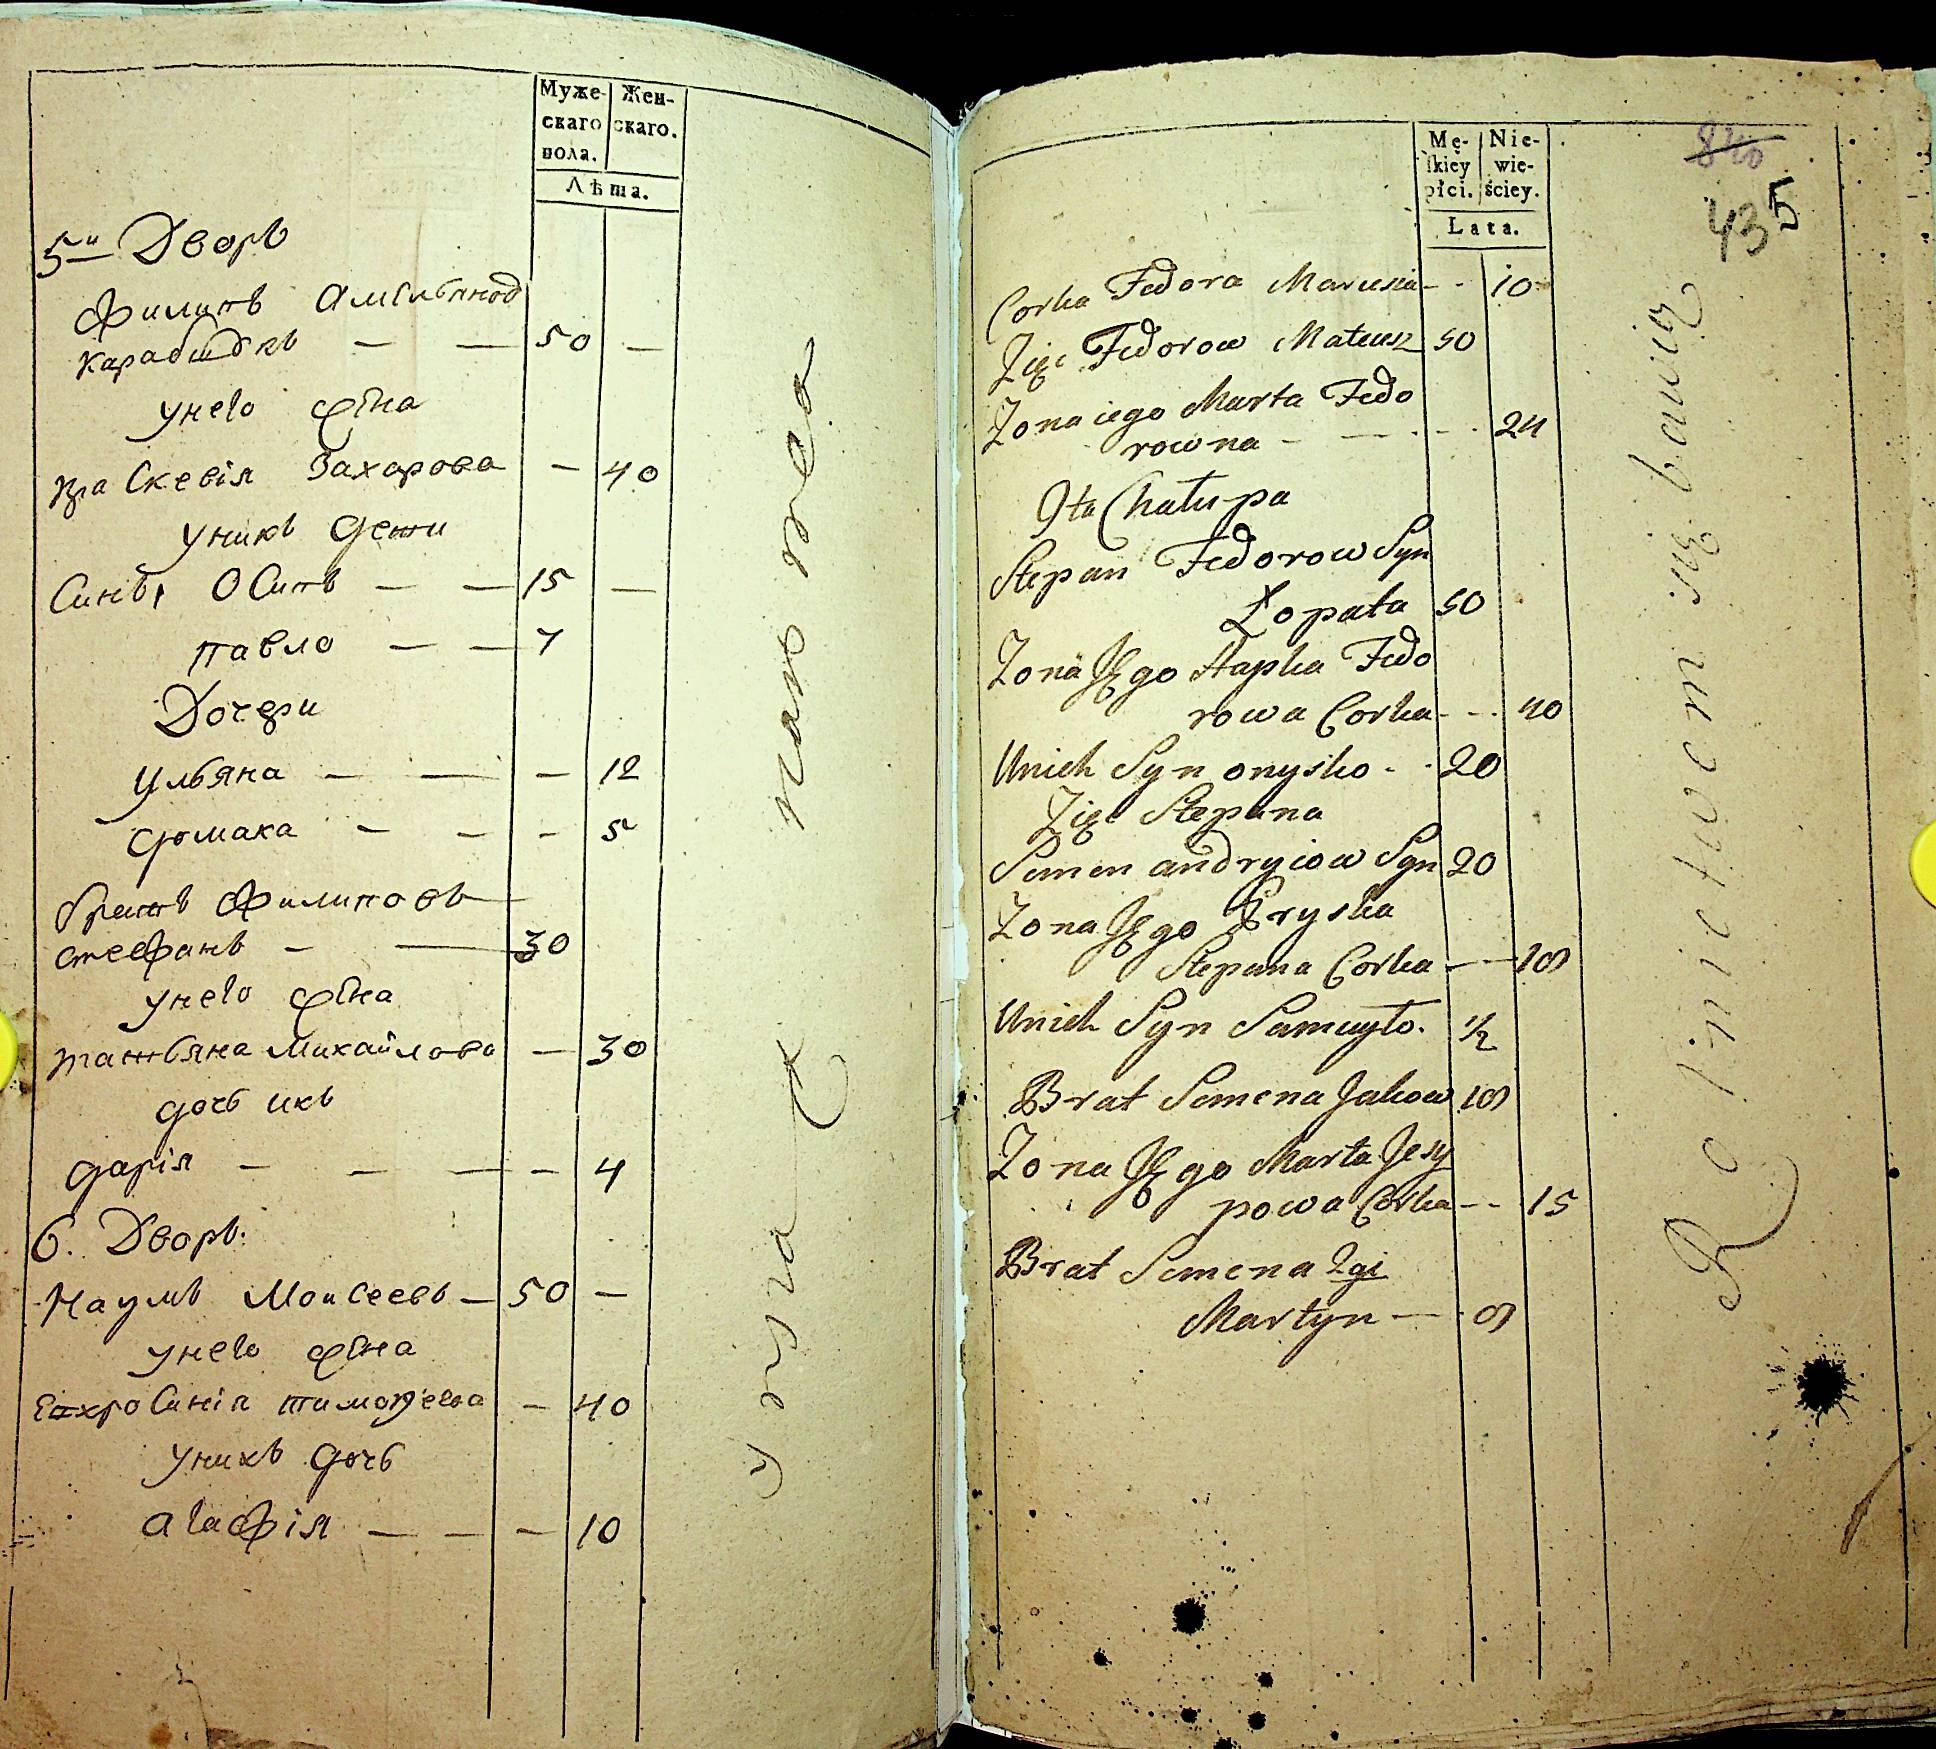 Муже-
скаго
пола.
Жен-
скаго.
Лѣта.
5й Дворъ
Филипъ Амельянов
Карабщокъ — — 50 —
унего жена
праскевія Захарова — 40
унихъ дети
Синъ, Осипъ — — 15 —
павло — — 7
Дочери
ульяна — — — 12
домаха — — — 5
братъ Филиповъ —
стефанъ — — 30
унего жена
татьяна Михайлова — 30
дочь ихъ
дарія — — — — 4
6. Дворъ.
Наумъ Моисеевъ — 50 —
унего жена
Евхросинія тимофеева — 40
унихъ дочь
агафія — — — 10
Mę-
ſkiey
płci.
Nie-
wie-
ściey.
Lata.
840
435
Corka Fedora Marusia - - 10
Zięc Fedorow Mateusz 50
Zona iego Marta Fedo
rowna - — - - 24
9ta Chałupa
Stepan Fedorow Syn
Łopata 50
Zona Jego Hapka Fedo
rowa Corka - - - 40
Unich Syn onysko - - 20
Zięc Stepana
Semen andryiow Syn 20
Zona Jego Pryska
Stepana Corka — — 18
Unich Syn Samuyło. 1/2
Brat Semena Jakow 18
Zona Jego Marta Jesy
powa Corka - - 15
Brat Semena 2gi
Martyn — 8
Rolnictwem się bawią